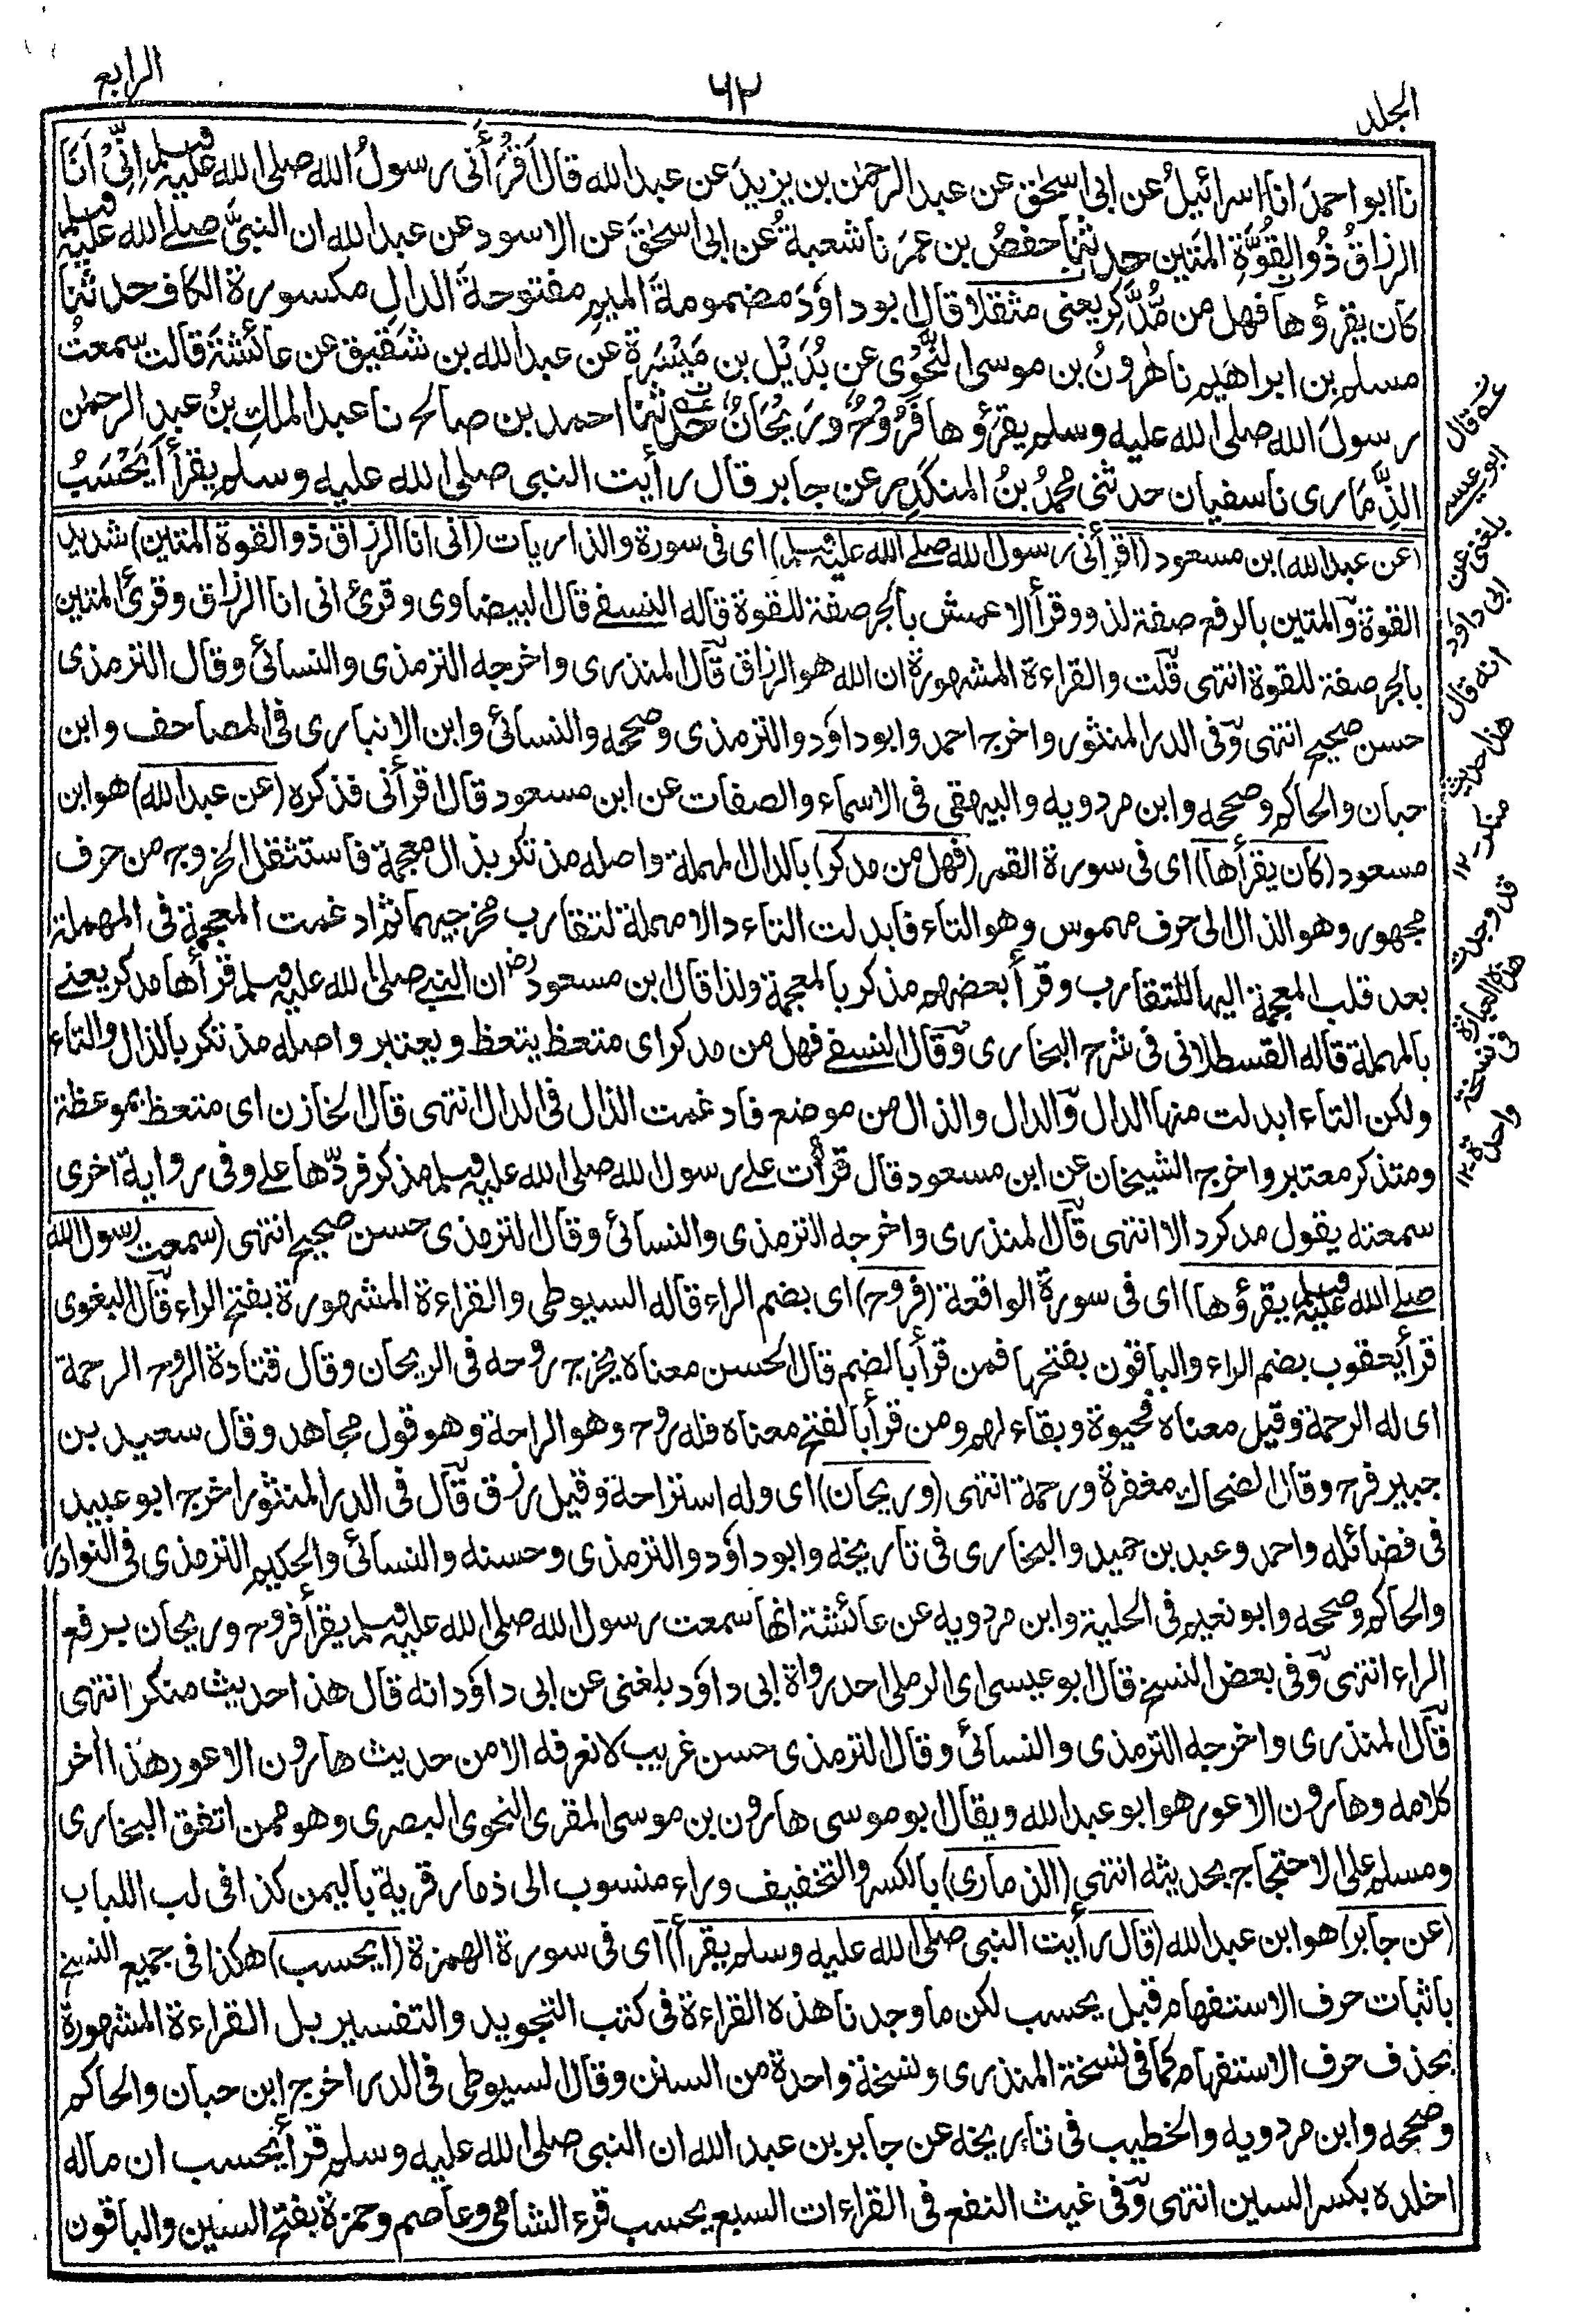 الجلد
٦٢
الرابع
نا ابو احمد انا اسرائيل عن ابى اسحٰق عن عبد الرحمٰن بن يزيد عن عبد الله قال اقرأنى رسول الله صلى الله عليه وسلم انى انا
الرزاق ذو القوة المتين حدثنا حفص بن عمر نا شعبة عن ابى اسحٰق عن الاسود عن عبد الله ان النبى صلى الله عليه وسلم
كان يقرؤها فهل من مُّدَّكِر يعنى مثقلا قال ابو داؤد مضمومة الميم مفتوحة الدال مكسورة الكاف حدثنا
مسلم بن ابراهيم نا هٰرون بن موسى النحوى عن بديل بن ميسرة عن عبد الله بن شقيق عن عائشة قالت سمعت
رسول الله صلى الله عليه وسلم يقرؤها فَرُوْحٌ وريحان حدثنا احمد بن صالح نا عبد الملك بن عبد الرحمٰن
الذمارى نا سفيان حدثنى محمد بن المنكدر عن جابر قال رأيت النبى صلى الله عليه وسلم يقرأ أيحسب
(عن عبد الله) بن مسعود (اقرأنى رسول الله صلى الله عليه وسلم) اى فى سورة والذاريات (انى انا الرزاق ذو القوة المتين) شديد
القوة والمتين بالرفع صفة لذو وقرأ الاعمش بالجر صفة للقوة قاله النسفى قال البيضاوى وقرئ انى انا الرزاق وقرئ المتين
بالجر صفة للقوة انتهى قلت والقراءة المشهورة ان الله هو الرزاق قال المنذرى واخرجه الترمذى والنسائى وقال الترمذى
حسن صحيح انتهى وفى الدر المنثور واخرج احمد وابو داؤد والترمذى وصححه والنسائى وابن الانبارى فى المصاحف وابن
حبان والحاكم وصححه وابن مردويه والبيهقى فى الاسماء والصفات عن ابن مسعود قال اقرأنى فذكره (عن عبد الله) هو ابن
مسعود (كان يقرأها) اى فى سورة القمر (فهل من مدكر) بالدال المهملة واصله مذتكر بذال معجمة فاستثقل الخروج من حرف
مجهور وهو الذال الى حرف مهموس وهو التاء فابدلت التاء دالا مهملة لتقارب مخرجيهما ثم ادغمت المعجمة فى المهملة
بعد قلب المعجمة اليها للتقارب وقرأ بعضهم مذكر بالمعجمة ولذا قال ابن مسعود رض ان النبى صلى الله عليه وسلم قرأها مدكر يعنى
بالمهملة قاله القسطلانى فى شرح البخارى وقال النسفى فهل من مدكر اى متعظ يتعظ ويعتبر واصله مذتكر بالذال والتاء
ولكن التاء ابدلت منها الدال والدال والذال من موضع فادغمت الذال فى الدال انتهى قال الخازن اى متعظ بموعظة
ومتذكر معتبر واخرج الشيخان عن ابن مسعود قال قرأت على رسول الله صلى الله عليه وسلم مذكر فردها على وفى رواية اخرى
سمعته يقول مدكر دالا انتهى قال المنذرى واخرجه الترمذى والنسائى وقال الترمذى حسن صحيح انتهى (سمعت رسول الله
صلى الله عليه وسلم يقرؤها) اى فى سورة الواقعة (فروح) اى بضم الراء قاله السيوطى والقراءة المشهورة بفتح الراء قال البغوى
قرأ يعقوب بضم الراء والباقون بفتحها فمن قرأ بالضم قال الحسن معناه يخرج روحه فى الريحان وقال قتادة الروح الرحمة
اى له الرحمة وقيل معناه فحيوة وبقاء لهم ومن قرأ بالفتح معناه فله روح وهو الراحة وهو قول مجاهد وقال سعيد بن
جبير فرح وقال الضحاك مغفرة ورحمة انتهى (وريحان) اى وله استراحة وقيل رزق قال فى الدر المنثور اخرج ابو عبيد
فى فضائله واحمد وعبد بن حميد والبخارى فى تاريخه وابو داؤد والترمذى وحسنه والنسائى والحكيم الترمذى فى النوادر
والحاكم وصححه وابو نعيم فى الحلية وابن مردويه عن عائشة انها سمعت رسول الله صلى الله عليه وسلم يقرأ فروح وريحان برفع
الراء انتهى وفى بعض النسخ قال ابو عيسى اى الرملى احد رواة ابى داؤد بلغنى عن ابى داؤد انه قال هذا حديث منكر انتهى
قال المنذرى واخرجه الترمذى والنسائى وقال الترمذى حسن غريب لا نعرفه الا من حديث هارون الاعور هذا اٰخر
كلامه وهارون الاعور هو ابو عبد الله ويقال ابو موسى هارون بن موسى المقرى النحوى البصرى وهو ممن اتفق البخارى
ومسلم على الاحتجاج بحديثه انتهى (الذمارى) بالكسر والتخفيف وراء منسوب الى ذمار قرية باليمن كذا فى لب اللباب
(عن جابر) هو ابن عبد الله (قال رأيت النبى صلى الله عليه وسلم يقرأ) اى فى سورة الهمزة (ايحسب) هكذا فى جميع النسخ
باثبات حرف الاستفهام قبل يحسب لكن ما وجدنا هذه القراءة فى كتب التجويد والتفسير بل القراءة المشهورة
بحذف حرف الاستفهام كما فى نسخة المنذرى ونسخة واحدة من السنن وقال السيوطى فى الدر اخرج ابن حبان والحاكم
وصححه وابن مردويه والخطيب فى تاريخه عن جابر بن عبد الله ان النبى صلى الله عليه وسلم قرأ يحسب ان ماله
اخلده بكسر السين انتهى وفى غيث النفع فى القراءات السبع يحسب قرء الشامى وعاصم وحمزة بفتح السين والباقون
قال
ابو عيسى
بلغنى عن
ابى داود
انه قال
هذا حديث
منكر ١٢
قد وجدت
هذه العبارة
فى نسخة
واحدة ١٢